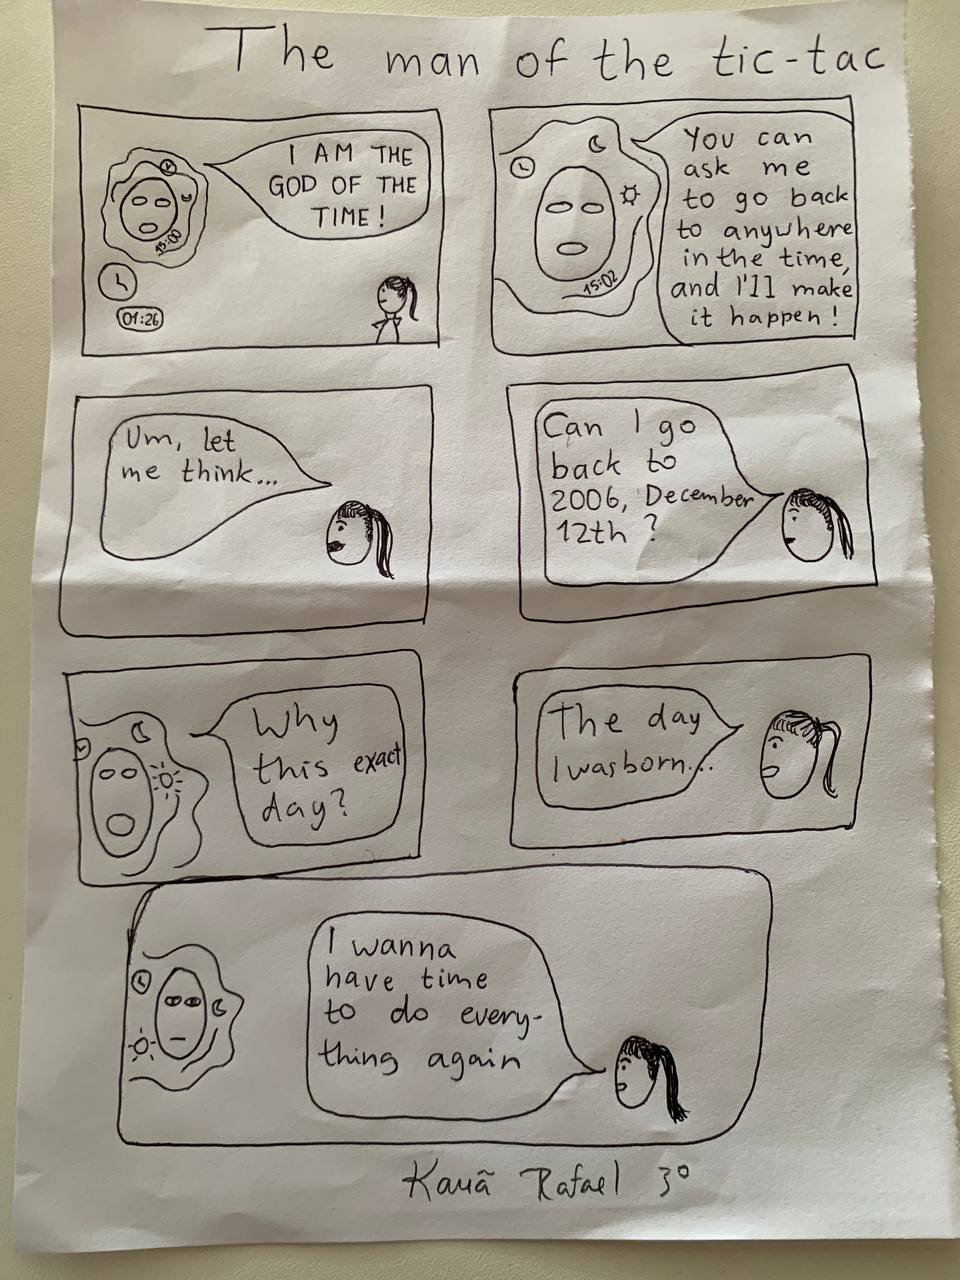 The man of the tic-tac
I AM THE
GOD OF THE
TIME!
15:00
01:26
You can
ask me
to go back
to anywhere
in the time,
and I'll make
it happen!
15:02
Um, let
me think...
Can I go
back to
2006, December
12th?
Why
this exact
day?
The day
I was born...
I wanna
have time
to do every-
thing again
Kauã Rafael 3º